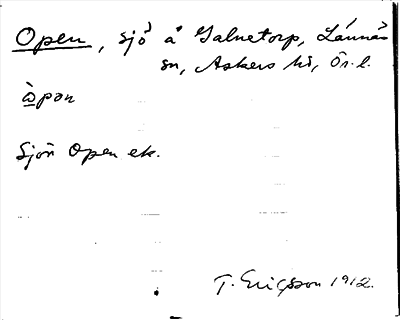 Open, sjö å Galnetorp, Lännäs
sn, Askers hd, Ör. l.
ὼpən
Sjön Open ek.
T. Ericsson 1912.